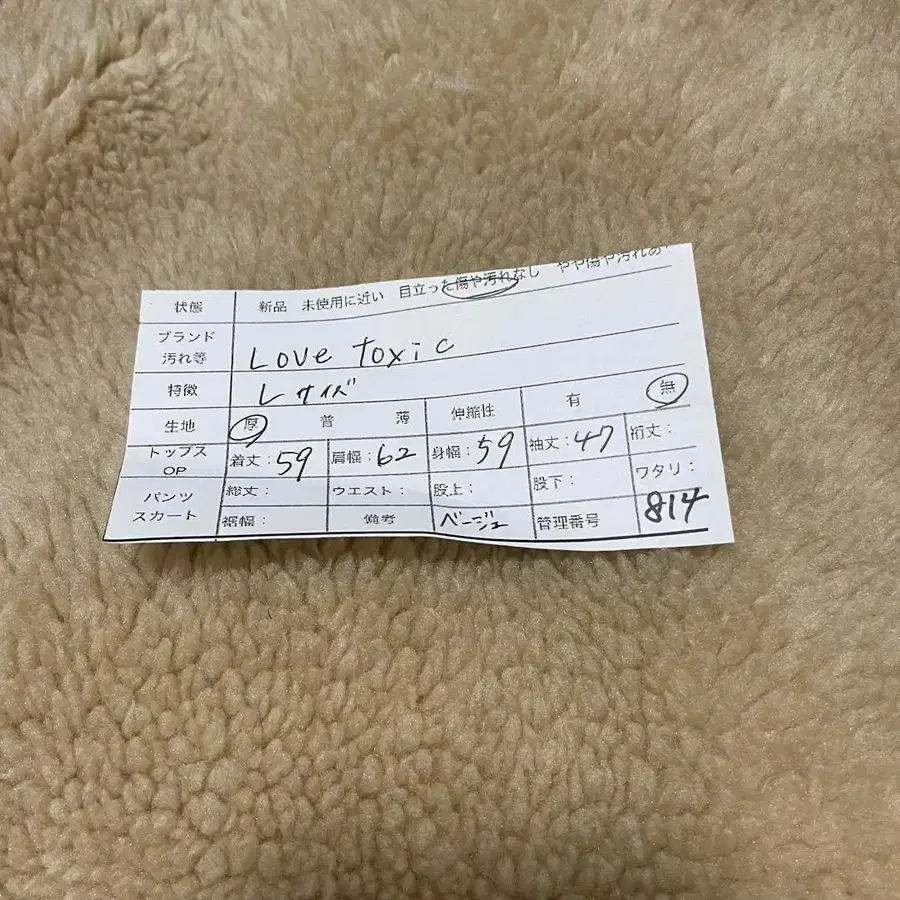 状態 新品 未使用に近い 目立った傷や汚れなし やや傷や汚れあ
ブランド
汚れ等 Love toxic
特徴 Lサイズ
生地 厚 普 薄 伸縮性 有 無
トップス
OP 着丈:59 肩幅:62 身幅:59 袖丈:47 裄丈:
パンツ
スカート 総丈: ウエスト: 股上: 股下: ワタリ:
裾幅: 備考 ベージュ 管理番号 814